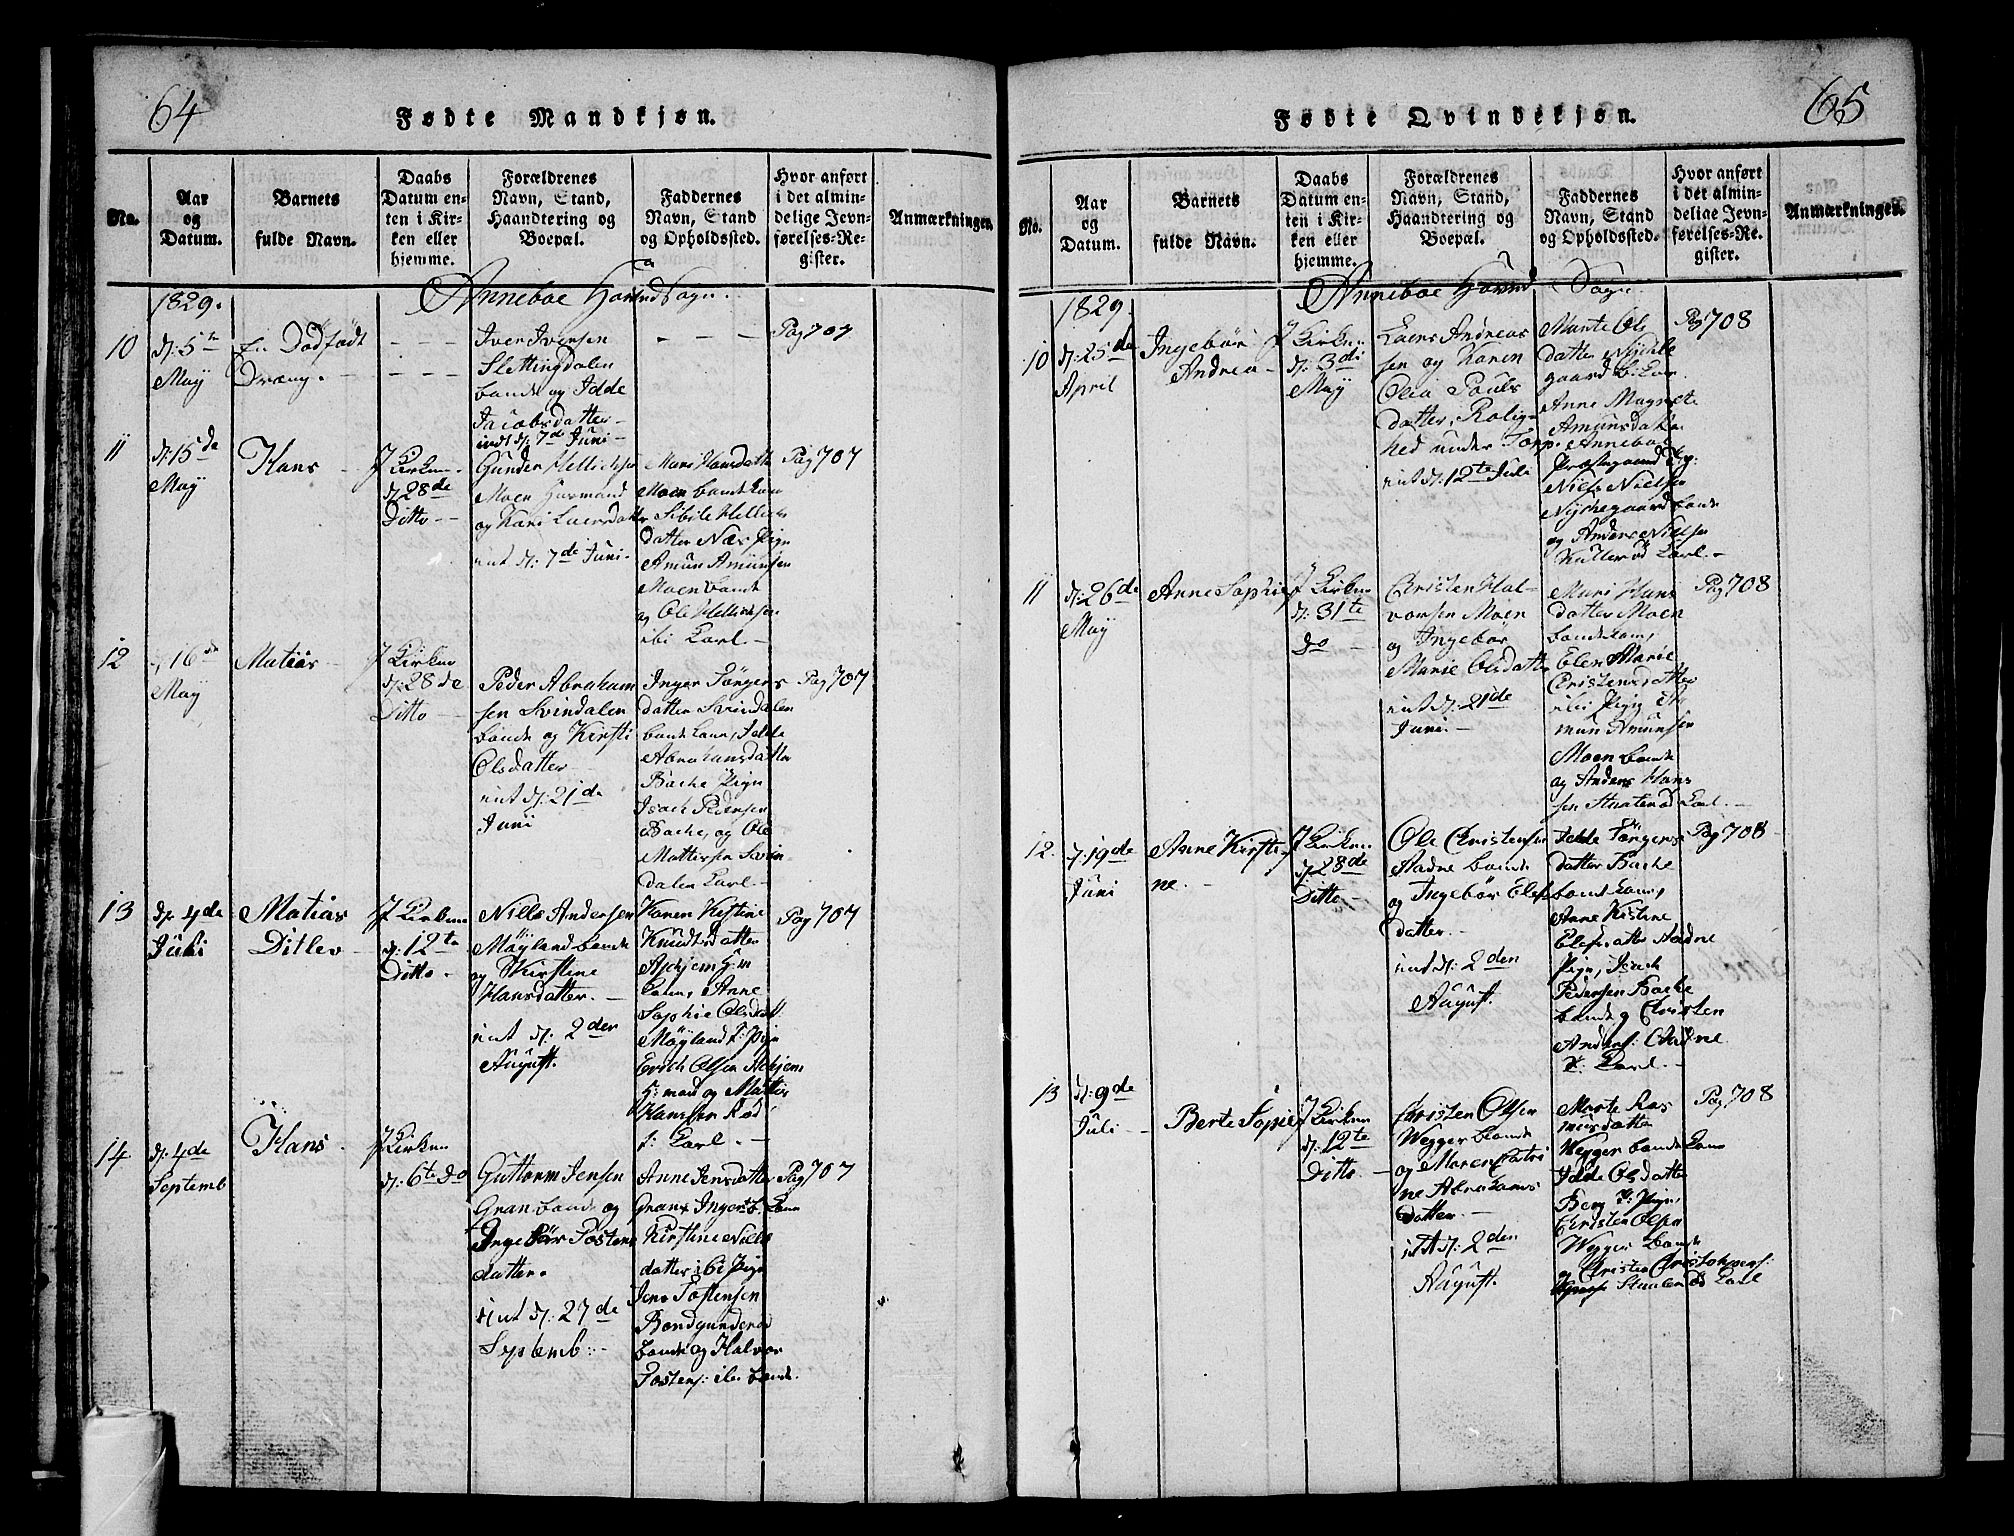 64
Fødte Mandkjøn.
No.
Aar
og
Datum.
Barnets
fulde Navn.
Daabs
Datum en-
ten i Kir-
ken eller
hjemme.
Forældrenes
Navn, Stand,
Haandtering og
Boepæl.
Faddernes
Navn, Stand
og Opholdssted.
Hvor anført
i det almin-
delige Jevn-
førelses-Re-
gister.
Anmærkninger.
Anneboe Hoved Sogn.
1829.
10
d: 5te
May
En Dødfødt
Dræng.
Iver Iversen
Slettingdalen
bonde og Idde
Jacobsdatter
indt d: 7de Juni
Pag 707
11
d: 15de
May
Hans
J Kirken
d: 28de
Ditto
Gunder Hellichsen
Moen Husmand
og Kari Larsdatter
int d: 7de Juni
Mari Hansdatter
Moen bondekone
Sibile Hellichs
datter Næs Pign
Amun Amunsen
Moen bonde
og Ole Hellichsen
ibi Karl
Pag 707
12
16de
May
Matias
J Kirken
d: 28de
Ditto
Peder Abraham
sen Svindalen
bonde og Kirsti
Olsdatter
int d: 21de
Juni
Inger Jörgens
datter Svindalen
bonde kone, Idde
Abrahamsdatter
Bache Pign
Isach Pedersen
Bache, og Ole
Mattissen Svin
dalen Karl
Pag 707
13
d: 4de
Juli
Matias
Ditlev
J Kirken
d: 12te
Ditto
Nills Andersen
Möyland bonde
og Kirstine
Hansdatter.
int d: 2den
August.
Karen Kistine
Knudtsdatter
H:m
Kone, Anne
Sophie Olsdatt
Möyland P: Pign
Erich Olsen
H: mand og Mattis
Hansen Röd
f: Karl.
Pag 707
14
d: 4de
Septemb
Hans
J Kirken
d: 6te do
Guttorm Jensen
Gran bonde og
Ingebör Tostens
datter.
int d: 27de
Septemb:
Anne Jensdatter
Gran Ingerts b. Kone
Kirstine Nills
datter ibi Pign
Jens Tostensen
Bondgunderöd
bonde og Halvor
Tostens: ibi bonde.
Pag 707
65
Fødte Qvindekjøn.
No.
Aar
og
Datum.
Barnets
fulde Navn.
Daabs
Datum en-
ten i Kir-
ken eller
hjemme.
Forældrenes
Navn, Stand,
Haandtering og
Boepæl.
Faddernes
Navn, Stand
og Opholdssted.
Hvor anført
i det almin-
delige Jevn-
førelses-Re-
gister.
Anmærkninger.
Anneboe Hoved Sogn
1829.
10
d: 25de
April
Ingebör
Andrea
J Kirken
d: 3di
May
Laers Andreas
sen og Karen
Olia Pouls
datter, Rolig-
hed under Torp.
int d: 12te Juli
Marte Ols
datter Nyche
gaard b: kone.
Anne Magrete
Amunsdatter
Anneboe
Præstegaard Pig:
Niels Nielsen
Nychegaard bonde
og Anders Nielsen
Kulleröd Karl
Pag 708
11
d: 26de
May
Anne Sophie
J Kirken
d: 31te
do
Christen Hal-
vorsen Moen
og Ingebör
Marie Olsdatter
int d: 21de
Juni.
Mari Hans
datter Moen
bondekone,
Elen Marie
Christensdatter
ibi Pign A
mun Amunsen
Moen bonde
og Anders Hans
sen Karl.
Pag 708
12.
d: 19de
Juni
Anne Kirsti
ne.
J Kirken
d: 28de
Ditto
Ole Christensen
Aadne bonde
og Ingebör Elefs
datter.
int d: 2den
August.
Idde Jörgens
datter Bache
bonde kone,
Anne Kistine
Elefsdatter Aadne
Pign, Isach
Pedersen Bache
bonde og Christen
Anders: Aadne
Karl.
Pag 708
13
d: 9de
Juli
Berte Sophie
J Kirken
d: 12te
Ditto
Christen Olsen
Wegger bonde
og Maren Catri
ne Abrahams
datter.
int d: 2den
August.
Marte Ras
musdatter
Wegger bonde kone
Idde Olsdatter
Berg P: Pign,
Christen Olsen
Wegger bonde
og Christen Christophers:
Karl
Pag 708